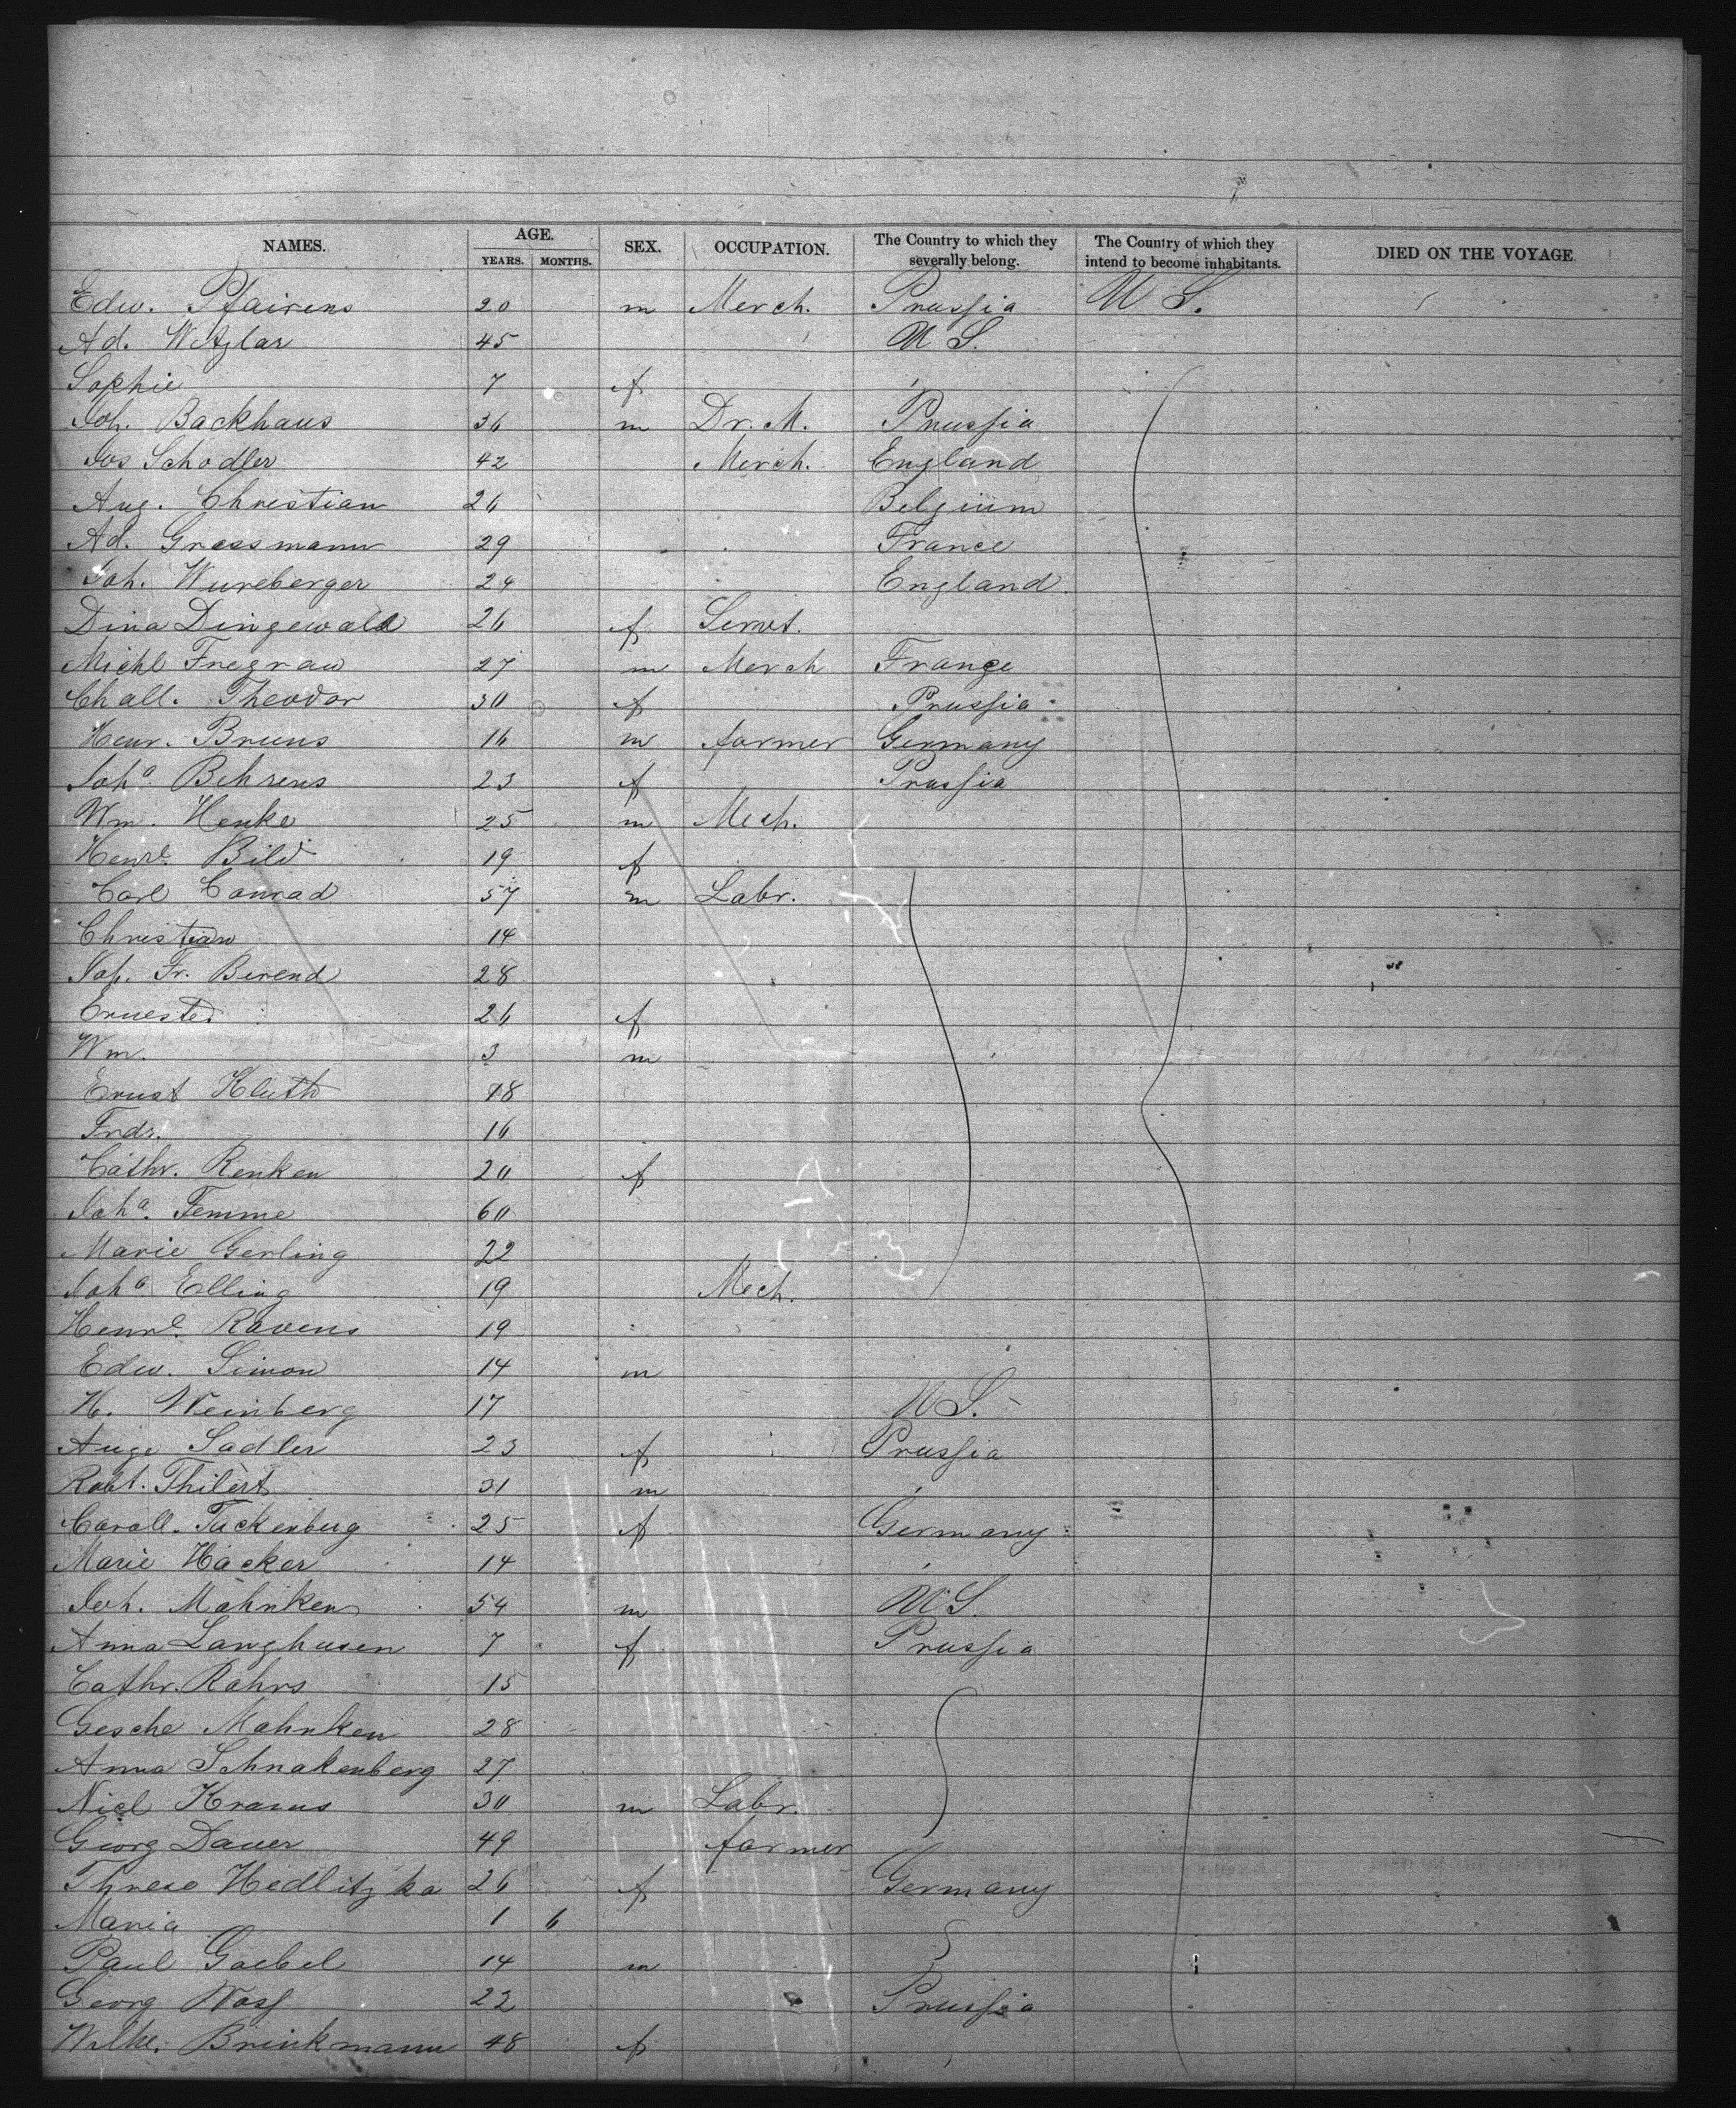 NAMES. AGE. YEARS. MONTHS. SEX. OCCUPATION. The Country to which they severally belong. The Country of which they intend to become inhabitants. DIED ON THE VOYAGE
Edw. Pfairens 20 m Merch. Prussia U S.
Ad. Wetzlar 45 U S.
Sophie 7 f
Joh. Backhaus 36 m Dr. M. Prussia
Jos Schodler 42 Merch. England
Aug. Christian 26 Belgium
Ad. Grassmann 29 France
Joh. Wureberger 24 England
Dina Dingewald 26 f Servt.
Michl Fregrau 27 m Merch France
Chall. Theodor 30 f Prussia
Henr. Bruns 16 m farmer Germany
Joha. Behrens 23 f Prussia
Wm. Henke 25 m Mech.
Henrl. Bild 19 f
Carl Conrad 57 m Labr.
Christian 14
Joh. Fr. Berend 28
Erneste. 26 f
Wm. 3 m
Ernst Kluth 18
Frdr. 16
Cathr. Renken 20 f
Joha. Femme 60
Marie Gerling 22
Joha Elling 19 Mech.
Henrl. Ravens 19
Edw. Simon 14 m
H. Weinberg 17 U S.
Auge Sadler 23 f Prussia
Robt. Thilert 31 m
Caroll. Tuckenburg 25 f Germany
Marie Häcker 14
Joh. Mahnken 54 m U S.
Anna Langhusen 7 f Prussia
Cathr. Rahrs 15
Gesche Mahnken 28
Anna Schnakenberg 27
Nicl Krams 30 m Labr.
Georg Dauer 49 farmer
Threse Hedlitzka 26 f Germany
Maria 1 6
Paul Goebel 14 m
Georg Wass 22 Prussia
Wilhe. Brinkmann 48 f